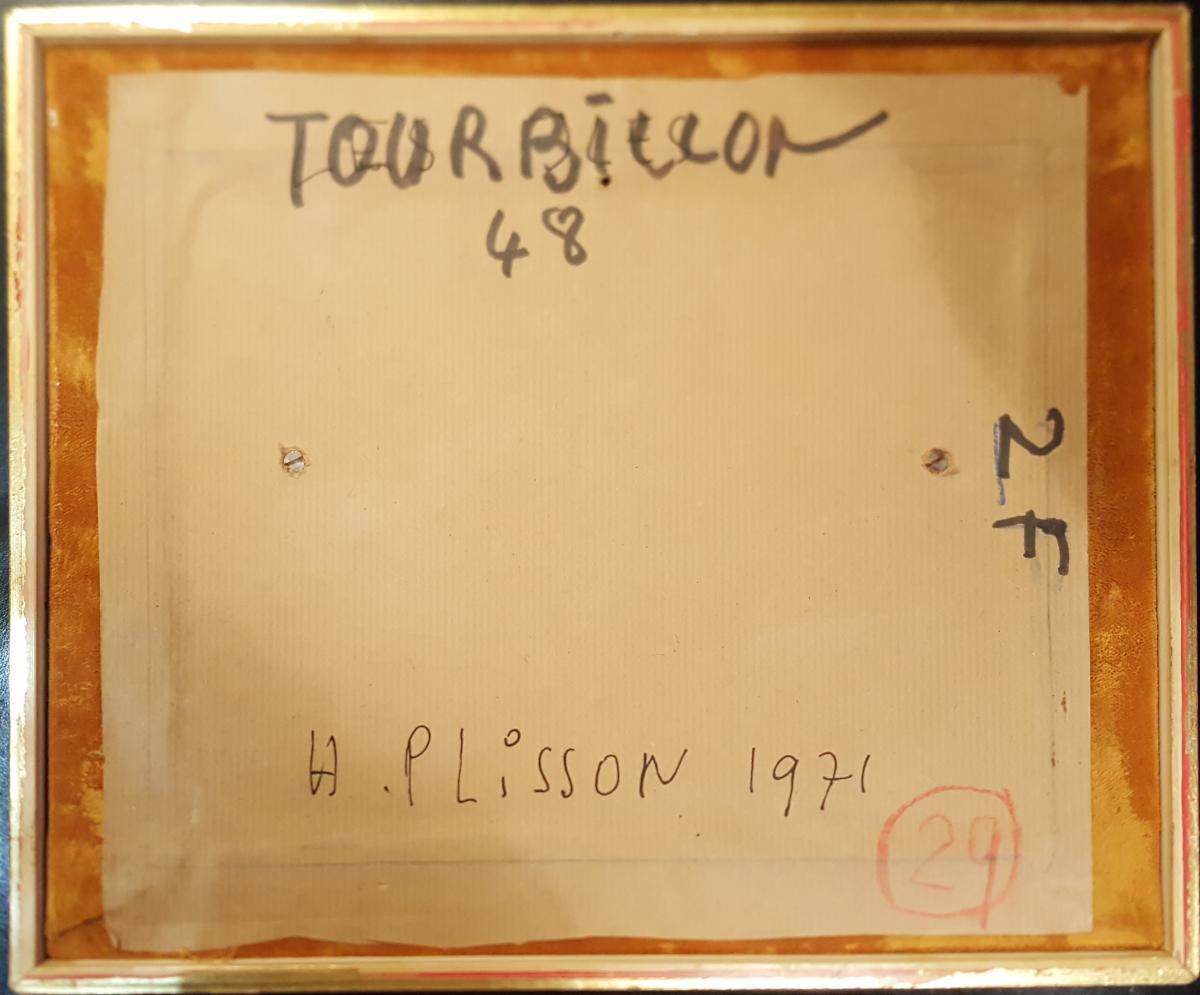 TOURBILLON
48
2F
H.PLiSSON 1971
29